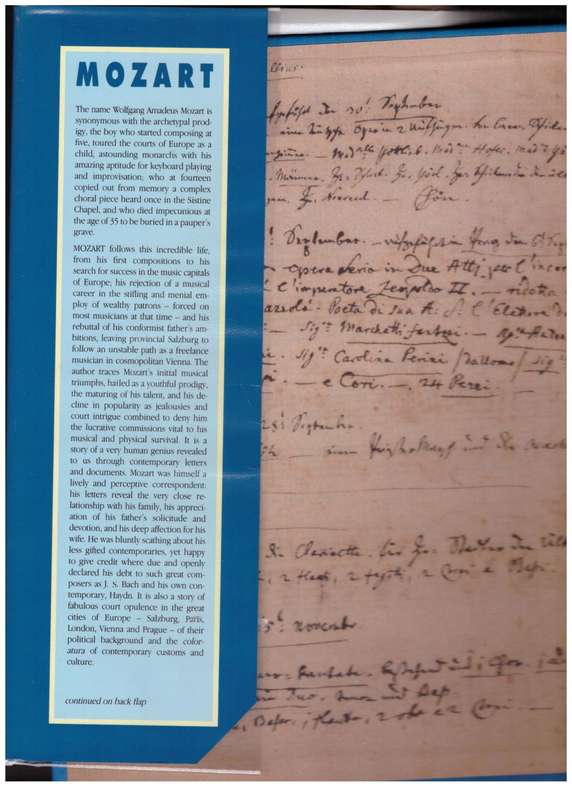 MOZART
The name Wolfgang Amadeus Mozart is
synonymous with the archetypal prod-
igy, the boy who started composing at
five, toured the courts of Europe as a
child, astounding monarchs with his
amazing aptitude for keyboard playing
and improvisation; who at fourteen
copied out from memory a complex
choral piece heard once in the Sistine
Chapel, and who died impecunious at
the age of 35 to be buried in a pauper's
grave.
MOZART follows this incredible life,
from his first compositions to his
search for success in the music capitals
of Europe; his rejection of a musical
career in the stifling and menial em-
ploy of wealthy patrons – forced on
most musicians at that time – and his
rebuttal of his conformist father's am-
bitions, leaving provincial Salzburg to
follow an unstable path as a freelance
musician in cosmopolitan Vienna. The
author traces Mozart's initial musical
triumphs, hailed as a youthful prodigy,
the maturing of his talent, and his de-
cline in popularity as jealousies and
court intrigue combined to deny him
the lucrative commissions vital to his
musical and physical survival. It is a
story of a very human genius revealed
to us through contemporary letters
and documents. Mozart was himself a
lively and perceptive correspondent:
his letters reveal the very close re-
lationship with his family, his appreci-
ation of his father's solicitude and
devotion, and his deep affection for his
wife. He was bluntly scathing about his
less gifted contemporaries, yet happy
to give credit where due and openly
declared his debt to such great com-
posers as J. S. Bach and his own con-
temporary, Haydn. It is also a story of
fabulous court opulence in the great
cities of Europe – Salzburg, Paris,
London, Vienna and Prague – of their
political background and the color-
atura of contemporary customs and
culture.
continued on back flap
den 30t September
Oper in 2
September.
opera Seria in Due Atti
l'imperatore Leopoldo II. — ridotta
Poeta di sua A: S: l'Elettore
Sigra Marchetti fantozi. —
Sigra Carolina Perini
— e Cori. — 24 Pezzi.
28t September.
und die
2 flauti, 2 fagotti, 2 Corni e Bassi.
15t Novembr.
Duo. Tenor und Bass
Basso, 1 flauto, 2 oboe 2 Corni. —